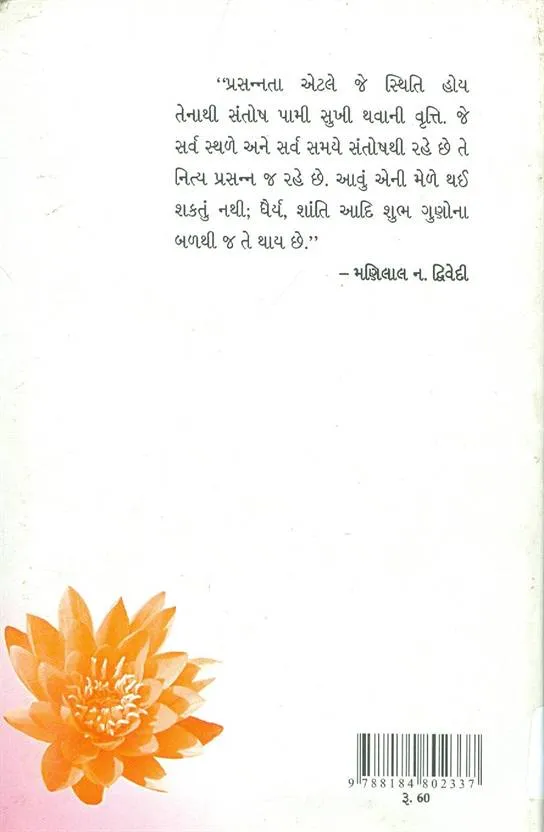 “પ્રસન્નતા એટલે જે સ્થિતિ હોય
તેનાથી સંતોષ પામી સુખી થવાની વૃત્તિ. જે
સર્વ સ્થળે અને સર્વ સમયે સંતોષથી રહે છે તે
નિત્ય પ્રસન્ન જ રહે છે. આવું એની મેળે થઈ
શકતું નથી; ધૈર્ય, શાંતિ આદિ શુભ ગુણોના
બળથી જ તે થાય છે.”
– મણિલાલ ન. દ્વિવેદી
9 788184 802337
રૂ. 60